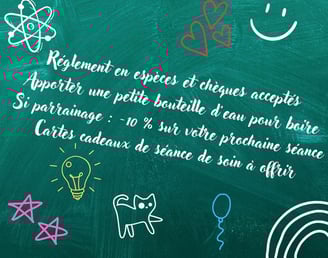 Règlement en espèces et chèques acceptés
Apporter une petite bouteille d'eau pour boire
Si parrainage : -10 % sur votre prochaine séance
Cartes cadeaux de séance de soin à offrir